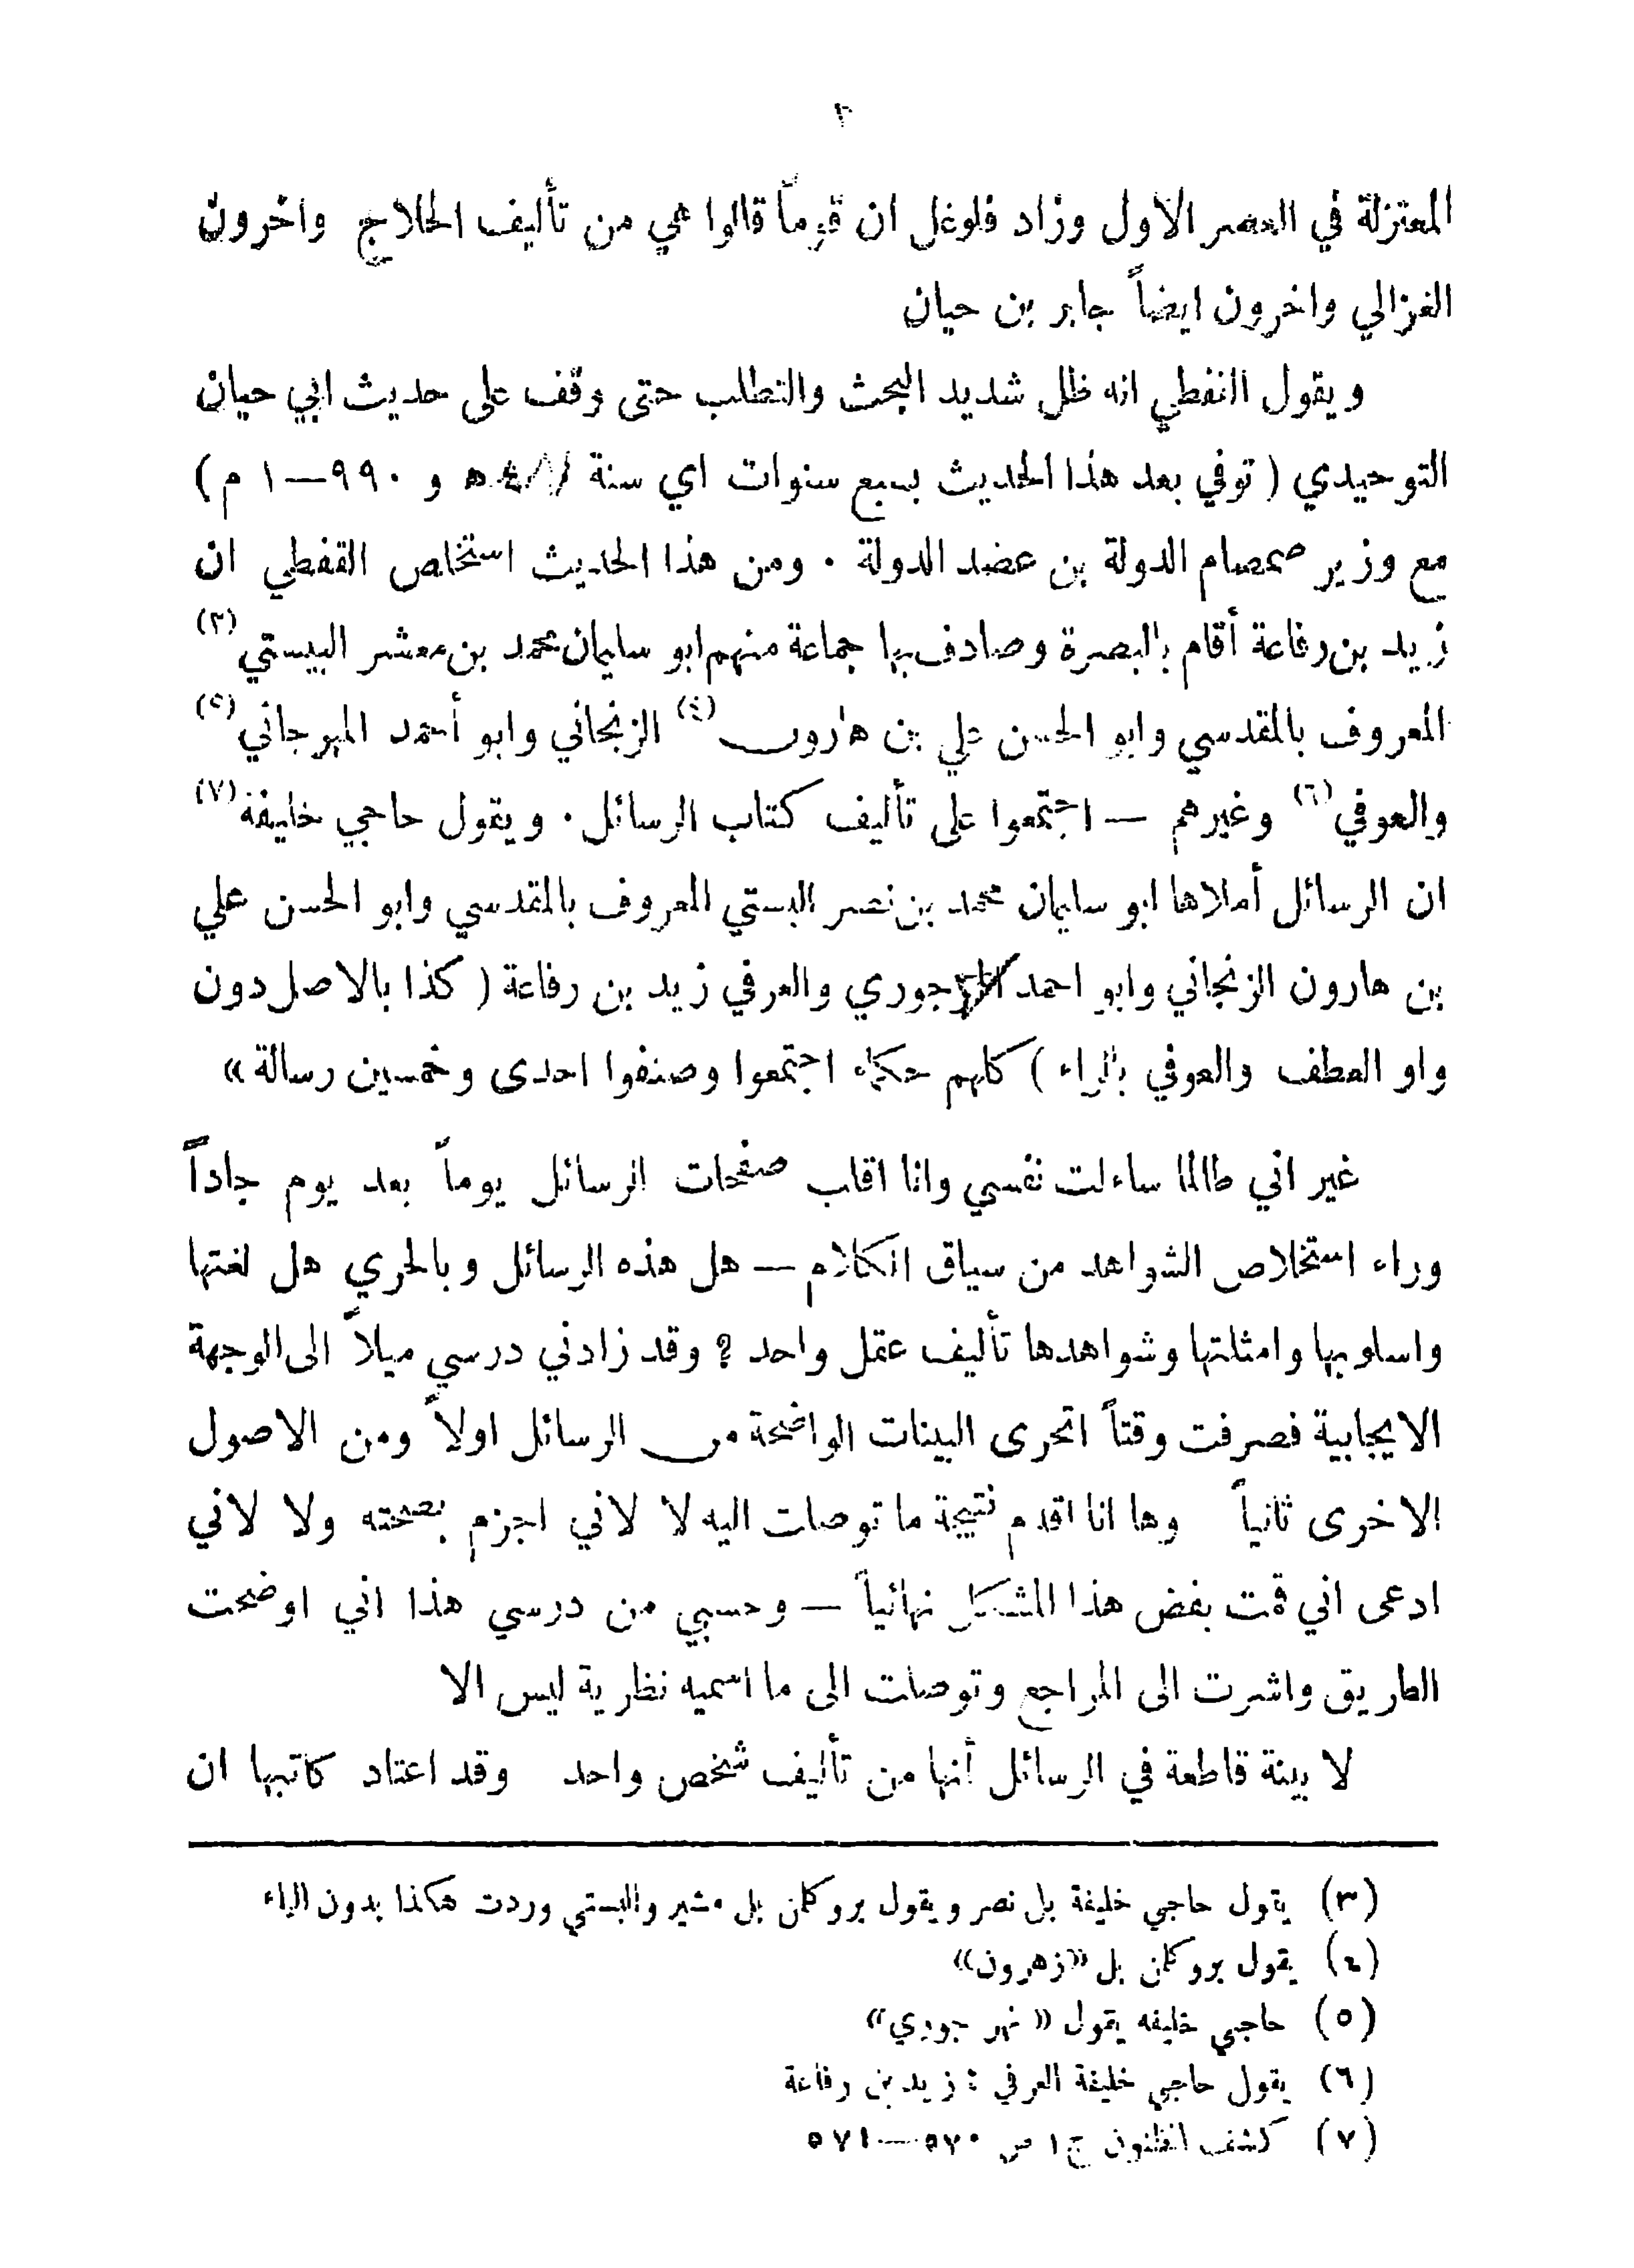 ٣
المعتزلة في العصر الاول وزاد فلوغل ان قوماً قالوا هي من تأليف الحلاج واخرون
الغزالي واخرون ايضاً جابر بن حيان
ويقول القفطي انه ظل شديد البحث والتطلب حتى وقف على حديث ابي حيان
التوحيدي ( توفي بعد هذا الحديث بسبع سنوات اي سنة ه و ٩٩٠—١ م )
مع وزير صمصام الدولة بن عضد الدولة . ومن هذا الحديث استخلص القفطي ان
زيد بن رفاعة أقام بالبصرة وصادف بها جماعة منهم ابو سليمان محمد بن معشر البيستي (٣)
المعروف بالمقدسي وابو الحسن علي بن هارون (٤) الزنجاني وابو أحمد المهرجاني (٥)
والعوفي (٦) وغيرهم — اجتمعوا على تأليف كتاب الرسائل . ويقول حاجي خليفة (٧)
ان الرسائل أملاها ابو سليمان محمد بن نصر البستي المعروف بالمقدسي وابو الحسن علي
بن هارون الزنجاني وابو احمد جوري والعرفي زيد بن رفاعة ( كذا بالاصل دون
واو العطف والعوفي بالراء ) كلهم حكماء اجتمعوا وصنفوا احدى وخمسين رسالة »
غير اني طالما ساءلت نفسي وانا اقلب صفحات الرسائل يوماً بعد يوم جاداً
وراء استخلاص الشواهد من سياق الكلام — هل هذه الرسائل وبالحري هل لغتها
واسلوبها وامثلتها وشواهدها تأليف عقل واحد ؟ وقد زادني درسي ميلاً الى الوجهة
الايجابية فصرفت وقتاً اتحرى البينات الواضحة من الرسائل اولاً ومن الاصول
الاخرى ثانياً وها انا اقدم نتيجة ما توصلت اليه لا لاني اجزم بصحته ولا لاني
ادعى اني قمت بفض هذا المشكل نهائياً — وحسبي من درسي هذا اني اوضحت
الطريق واشرت الى المراجع وتوصلت الى ما اسميه نظرية ليس الا
لا بينة قاطعة في الرسائل أنها من تأليف شخص واحد وقد اعتاد كاتبها ان
(٣) يقول حاجي خليفة بل نصر ويقول بروكلمن بل مشير والبستي وردت هكذا بدون الياء
(٤) يقول بروكلمن بل «زهرون»
(٥) حاجي خليفه يقول « نهر جوري»
(٦) يقول حاجي خليفة العرفي : زيد بن رفاعة
(٧) كشف الظنون ج ١ ص ٥٧٠—٥٧١